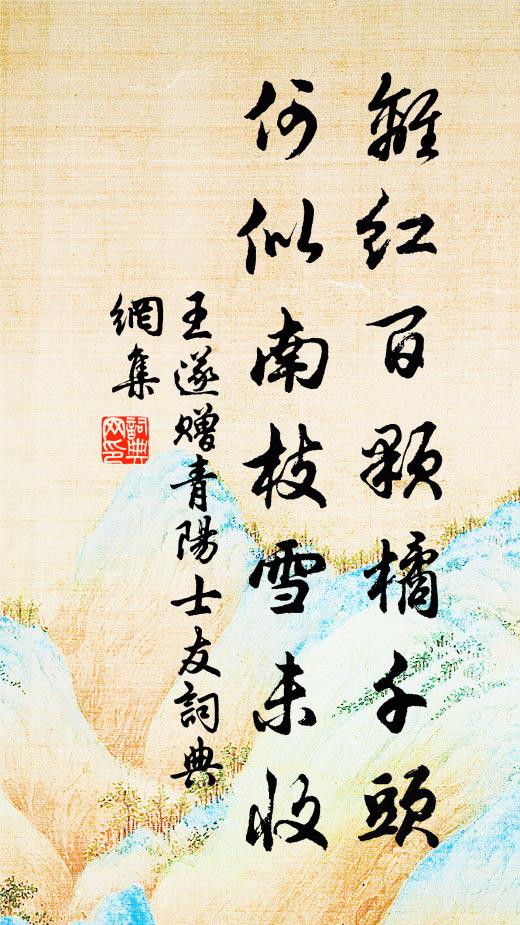 離紅百顆橘千頭
何似南枝雪未收
王遂赠青陽士友詞典
網集
詞典
网印